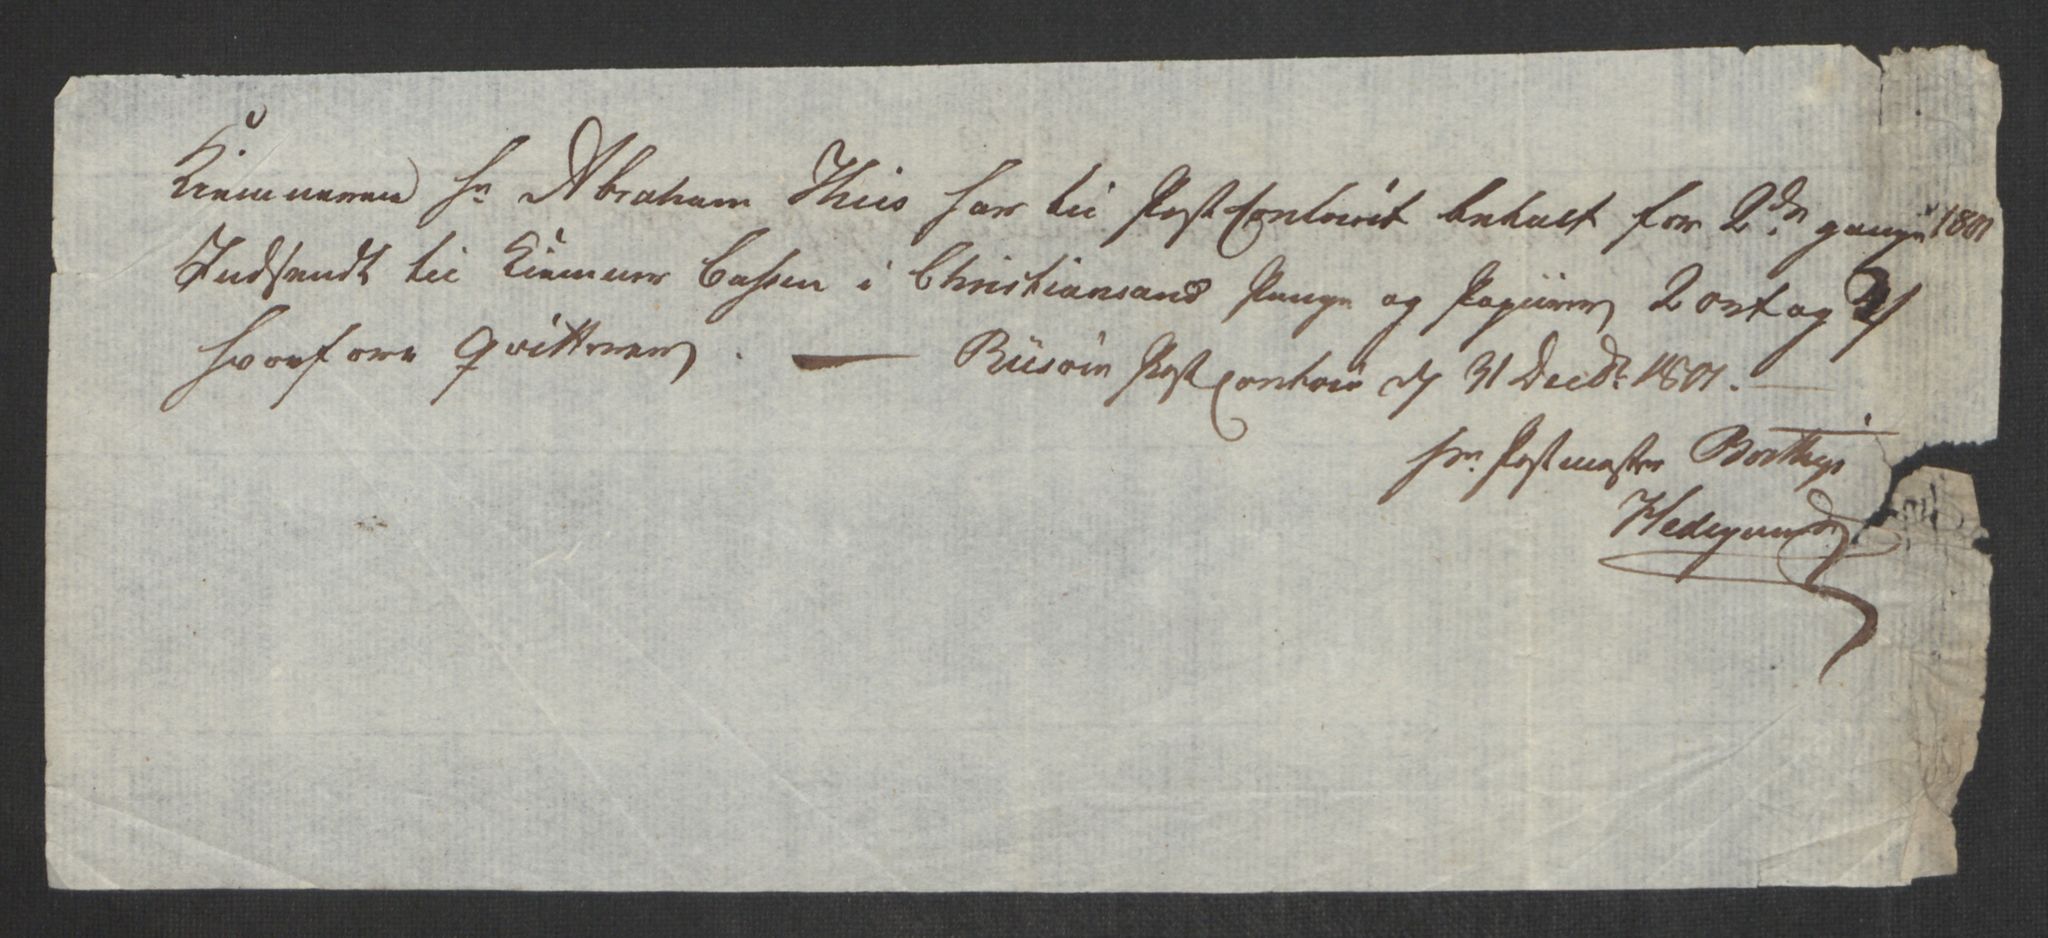 Kiemneren Hr Abraham Thiis har til Post Contoiret betalt for 2de gange 1801
Indsendt til Kiemner Cassen i Christiansand Penge og Papiirer 2 ort og
hvorfore qvitteres. — Riisöer Post contoir d 31 Decbr 1801. —
Hr. Postmester
Hedegaard